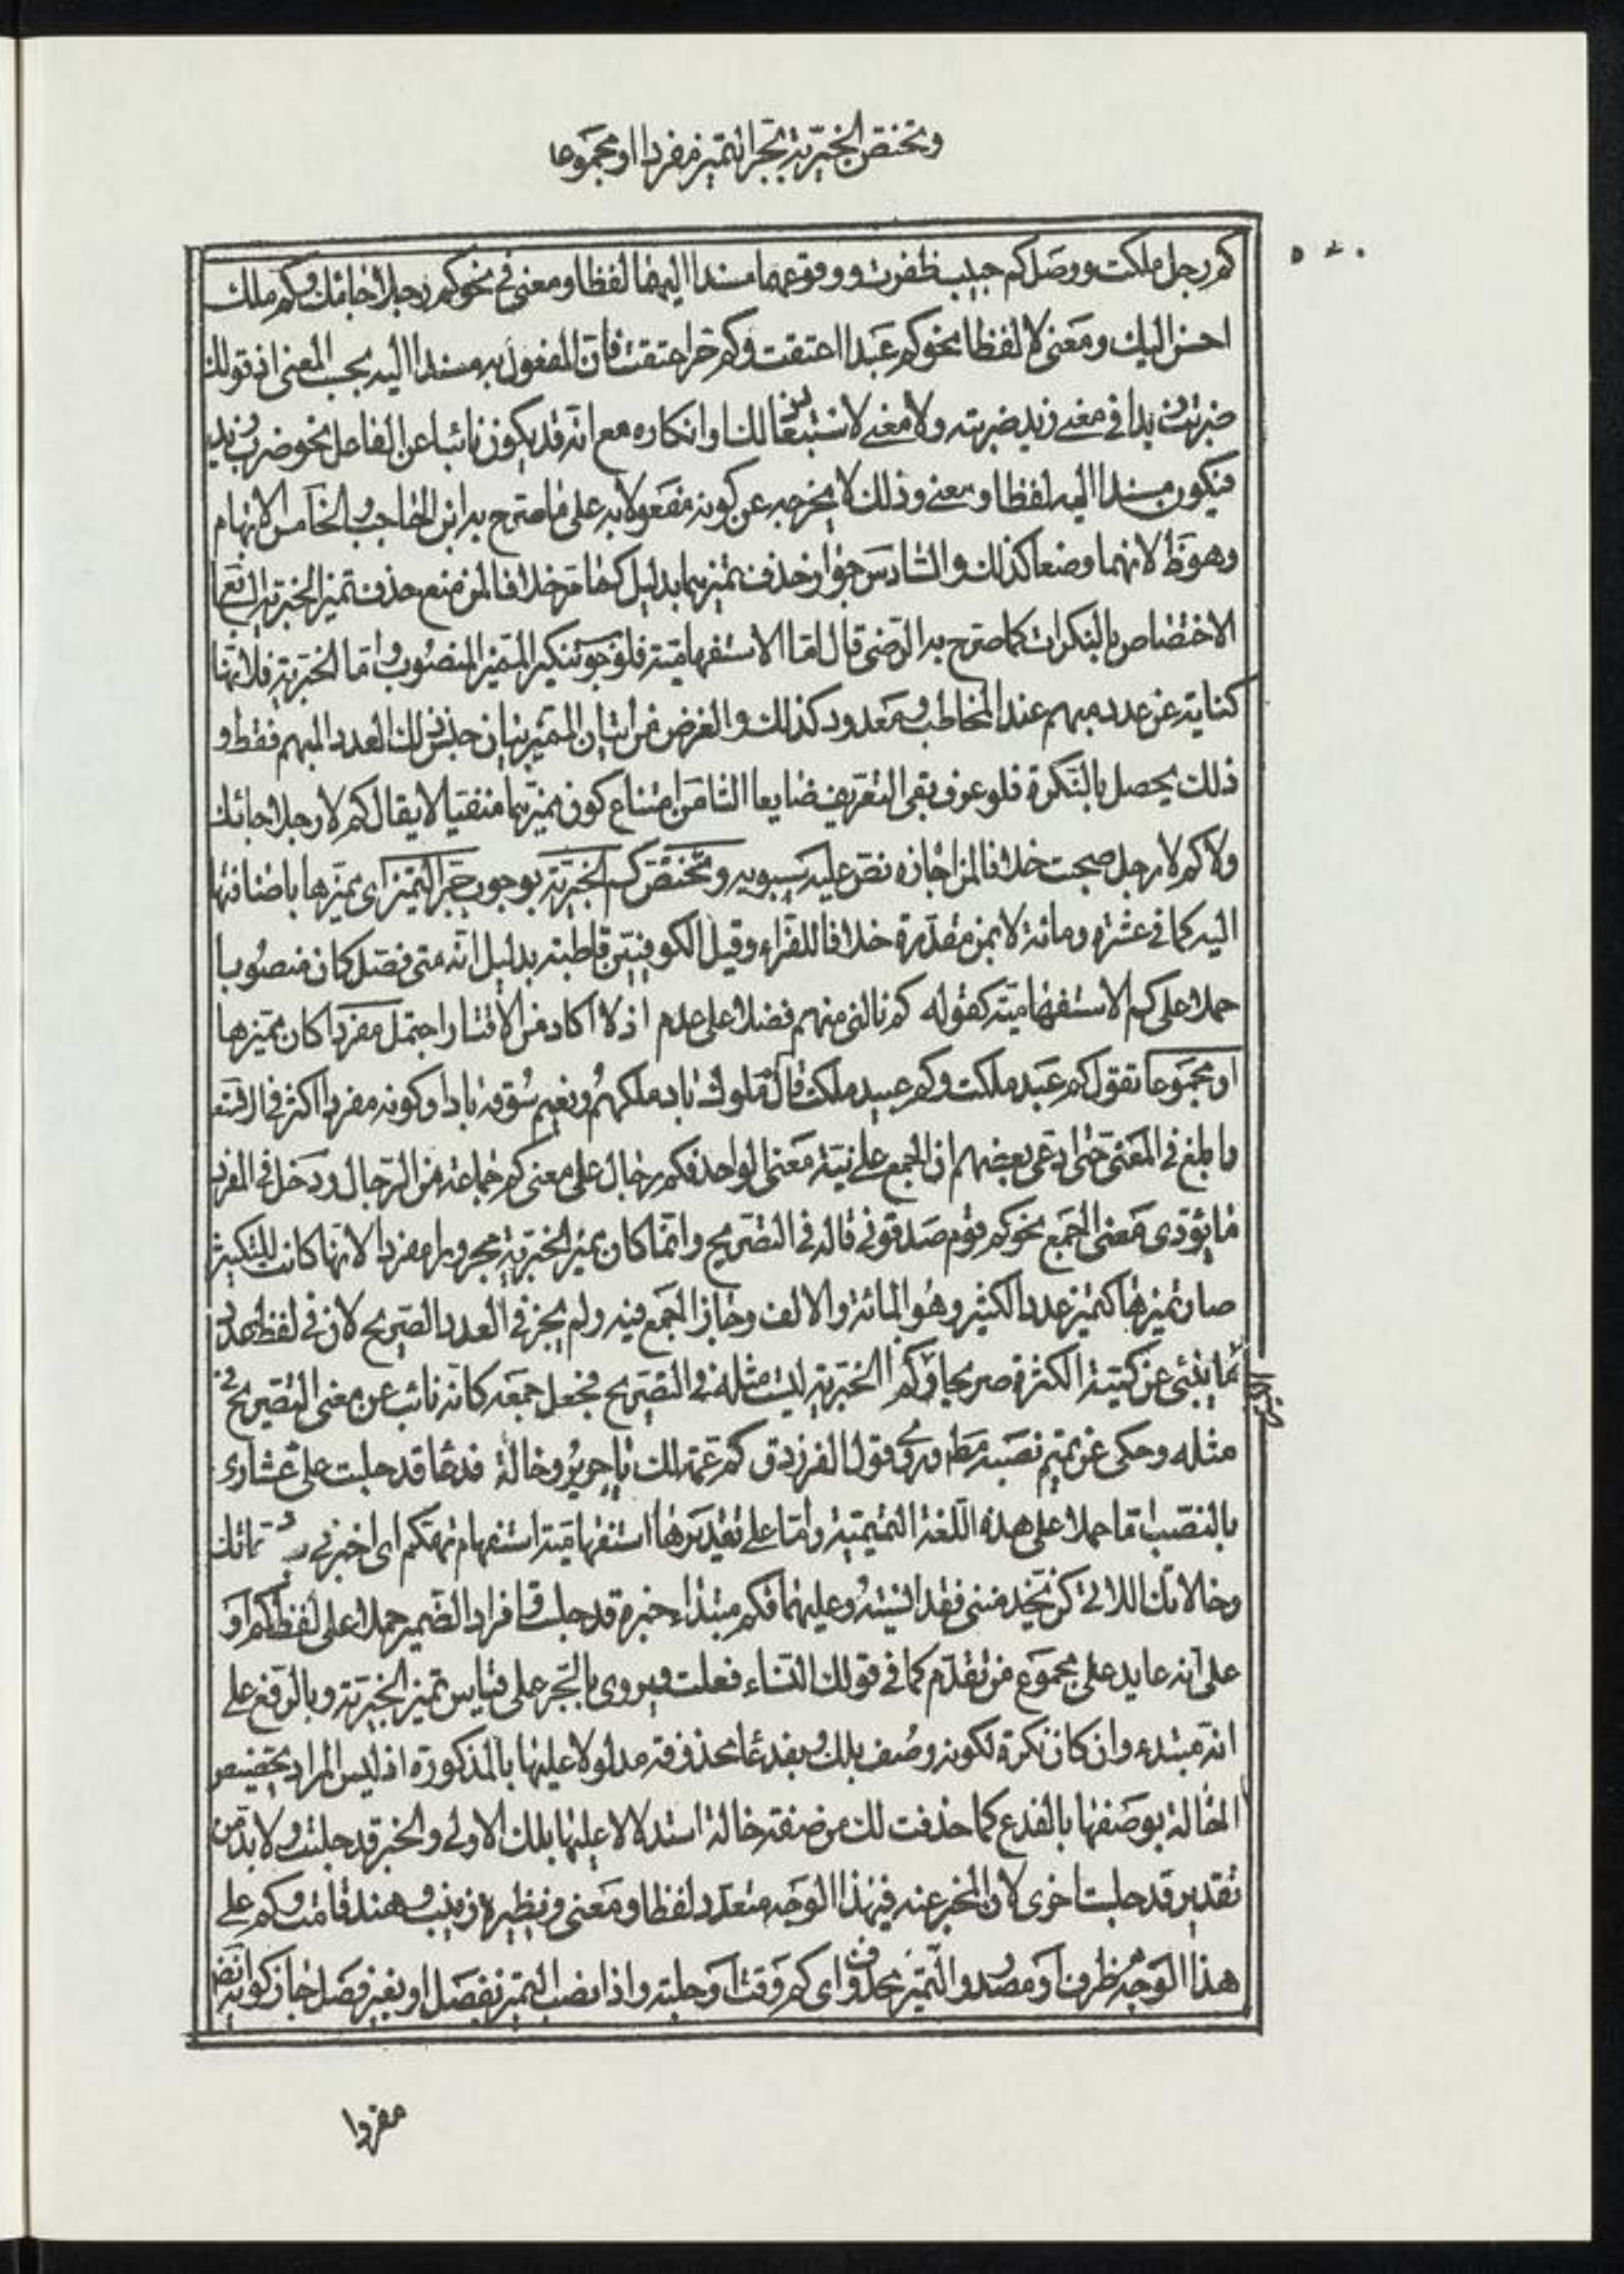 وتختص الخبرية بجر التميز مفردا او مجموعا
كم رجل ملكت ووصل كم حبيب ظفرت ووقوعهما مسندا اليهما لفظا ومعنى في نحو كم رجلا جائك وكم ملك
احسن اليك ومعنى لا لفظا نحو كم عبدا اعتقت وكم حر اعتقت فان المفعول به مسندا اليه بحسب المعنى اذ قولك
ضربت زيدا في معنى زيد ضربته ولا معنى لاستبعاد ذلك وانكاره مع انه قد يكون نائبا عن الفاعل نحو ضرب زيد
فيكون مسندا اليه لفظا ومعنى وذلك لا يخرجه عن كونه مفعولا به على ما صرح به ابن الحاجب والخامس الابهام
وهو ظ لانهما وضعا كذلك والسادس جواز حذف تميزهما بدليل كما مر خلافا لمن منع حذف تميز الخبرية السابع
الاختصاص بالنكرات كما صرح به الرضى قال اما الاستفهامية فلوجوب تنكير المميز المنصوب واما الخبرية فلانها
كناية عن عدد مبهم عند المخاطب ومعدود كذلك والغرض من اتيان التميز بيان جنس ذلك العدد المبهم فقط و
ذلك يحصل بالنكرة فلو عرف بقى التعريف ضايعا الثامن امتناع كون تميزهما منفيا لا يقال كم لا رجلا جائك
ولا كم لا رجل صحبت خلافا لمن اجازه نص عليه سيبويه وتختص كم الخبرية بوجوب جر التميز اى تميزها باضافتها
اليه كما في عشرة ومائة لا بمن مقدرة خلافا للفراء وقيل الكوفيين قاطبة بدليل انه متى فصل كان منصوبا
حملا على كم الاستفهامية كقوله كم نالنى منهم فضلا على عدم اذ لا اكاد من الاقتار احتمل مفردا كان تميزها
او مجموعا تقول كم عبد ملكت وكم عبيد ملكت قال كم ملوك باد ملكهم ونعيم سوقة بادا وكونه مفردا اكثر في الاستعمال
وابلغ في المعنى حتى ادعى بعضهم ان الجمع على نية معنى الواحد فكم رجال على معنى كم جماعة من الرجال ودخل في المفرد
ما يؤدى معنى الجمع نحو كم قوم صدقونى قاله في التصريح وانما كان تميز الخبرية مجرورا مفردا لانها كانت للتكثير
صار تميزها كتميز عدد الكثير وهو المائة والالف وجاز الجمع فيه ولم يجز في العدد الصريح لان في لفظ العدد
ما ينبئ عن كمية الكثرة صريحا وكم الخبرية ليست مثله في التصريح فجعل جمعه كانه نائب عن معنى التصريح في
مثله وحكى عن تميم نصبه مط وروى قول الفرزدق كم عمة لك يا جرير وخالة فدعا قد حلبت على عشارى
بالنصب اما حملا على هذه اللغة التميمية واما على تقديرها استفهامية استفهام تهكم اى اخبرنى عماتك
وخالاتك اللاتى كن يخدمننى فقد نسيته وعليهما فكم مبتداء خبره قد حلبت وافراد الضمير حملا على لفظ كم او
على انه عايد على مجموع من تقدم كما في قولك النساء فعلت ويروى بالجر على قياس تميز الخبرية وبالرفع على
انه مبتدء وان كان نكرة لكونه وصف بلك وبفدعا محذوفة مدلولا عليها بالمذكورة اذ ليس المراد تخصيص
الخالة بوصفها بالفدع كما حذفت لك من صفة خالة استدلالا عليها بلك الاولى والخبر قد حلبت ولا بد من
تقدير قد حلبت اخرى لان المخبر عنه في هذا الوجه متعدد لفظا ومعنى ونظيره زينب وهند قامت وكم على
هذا الوجه ظرف او مصدر والتميز محذوف اى كم وقت او حلبة واذا نصب التميز بفصل او بغير فصل جاز كونه
مفردا